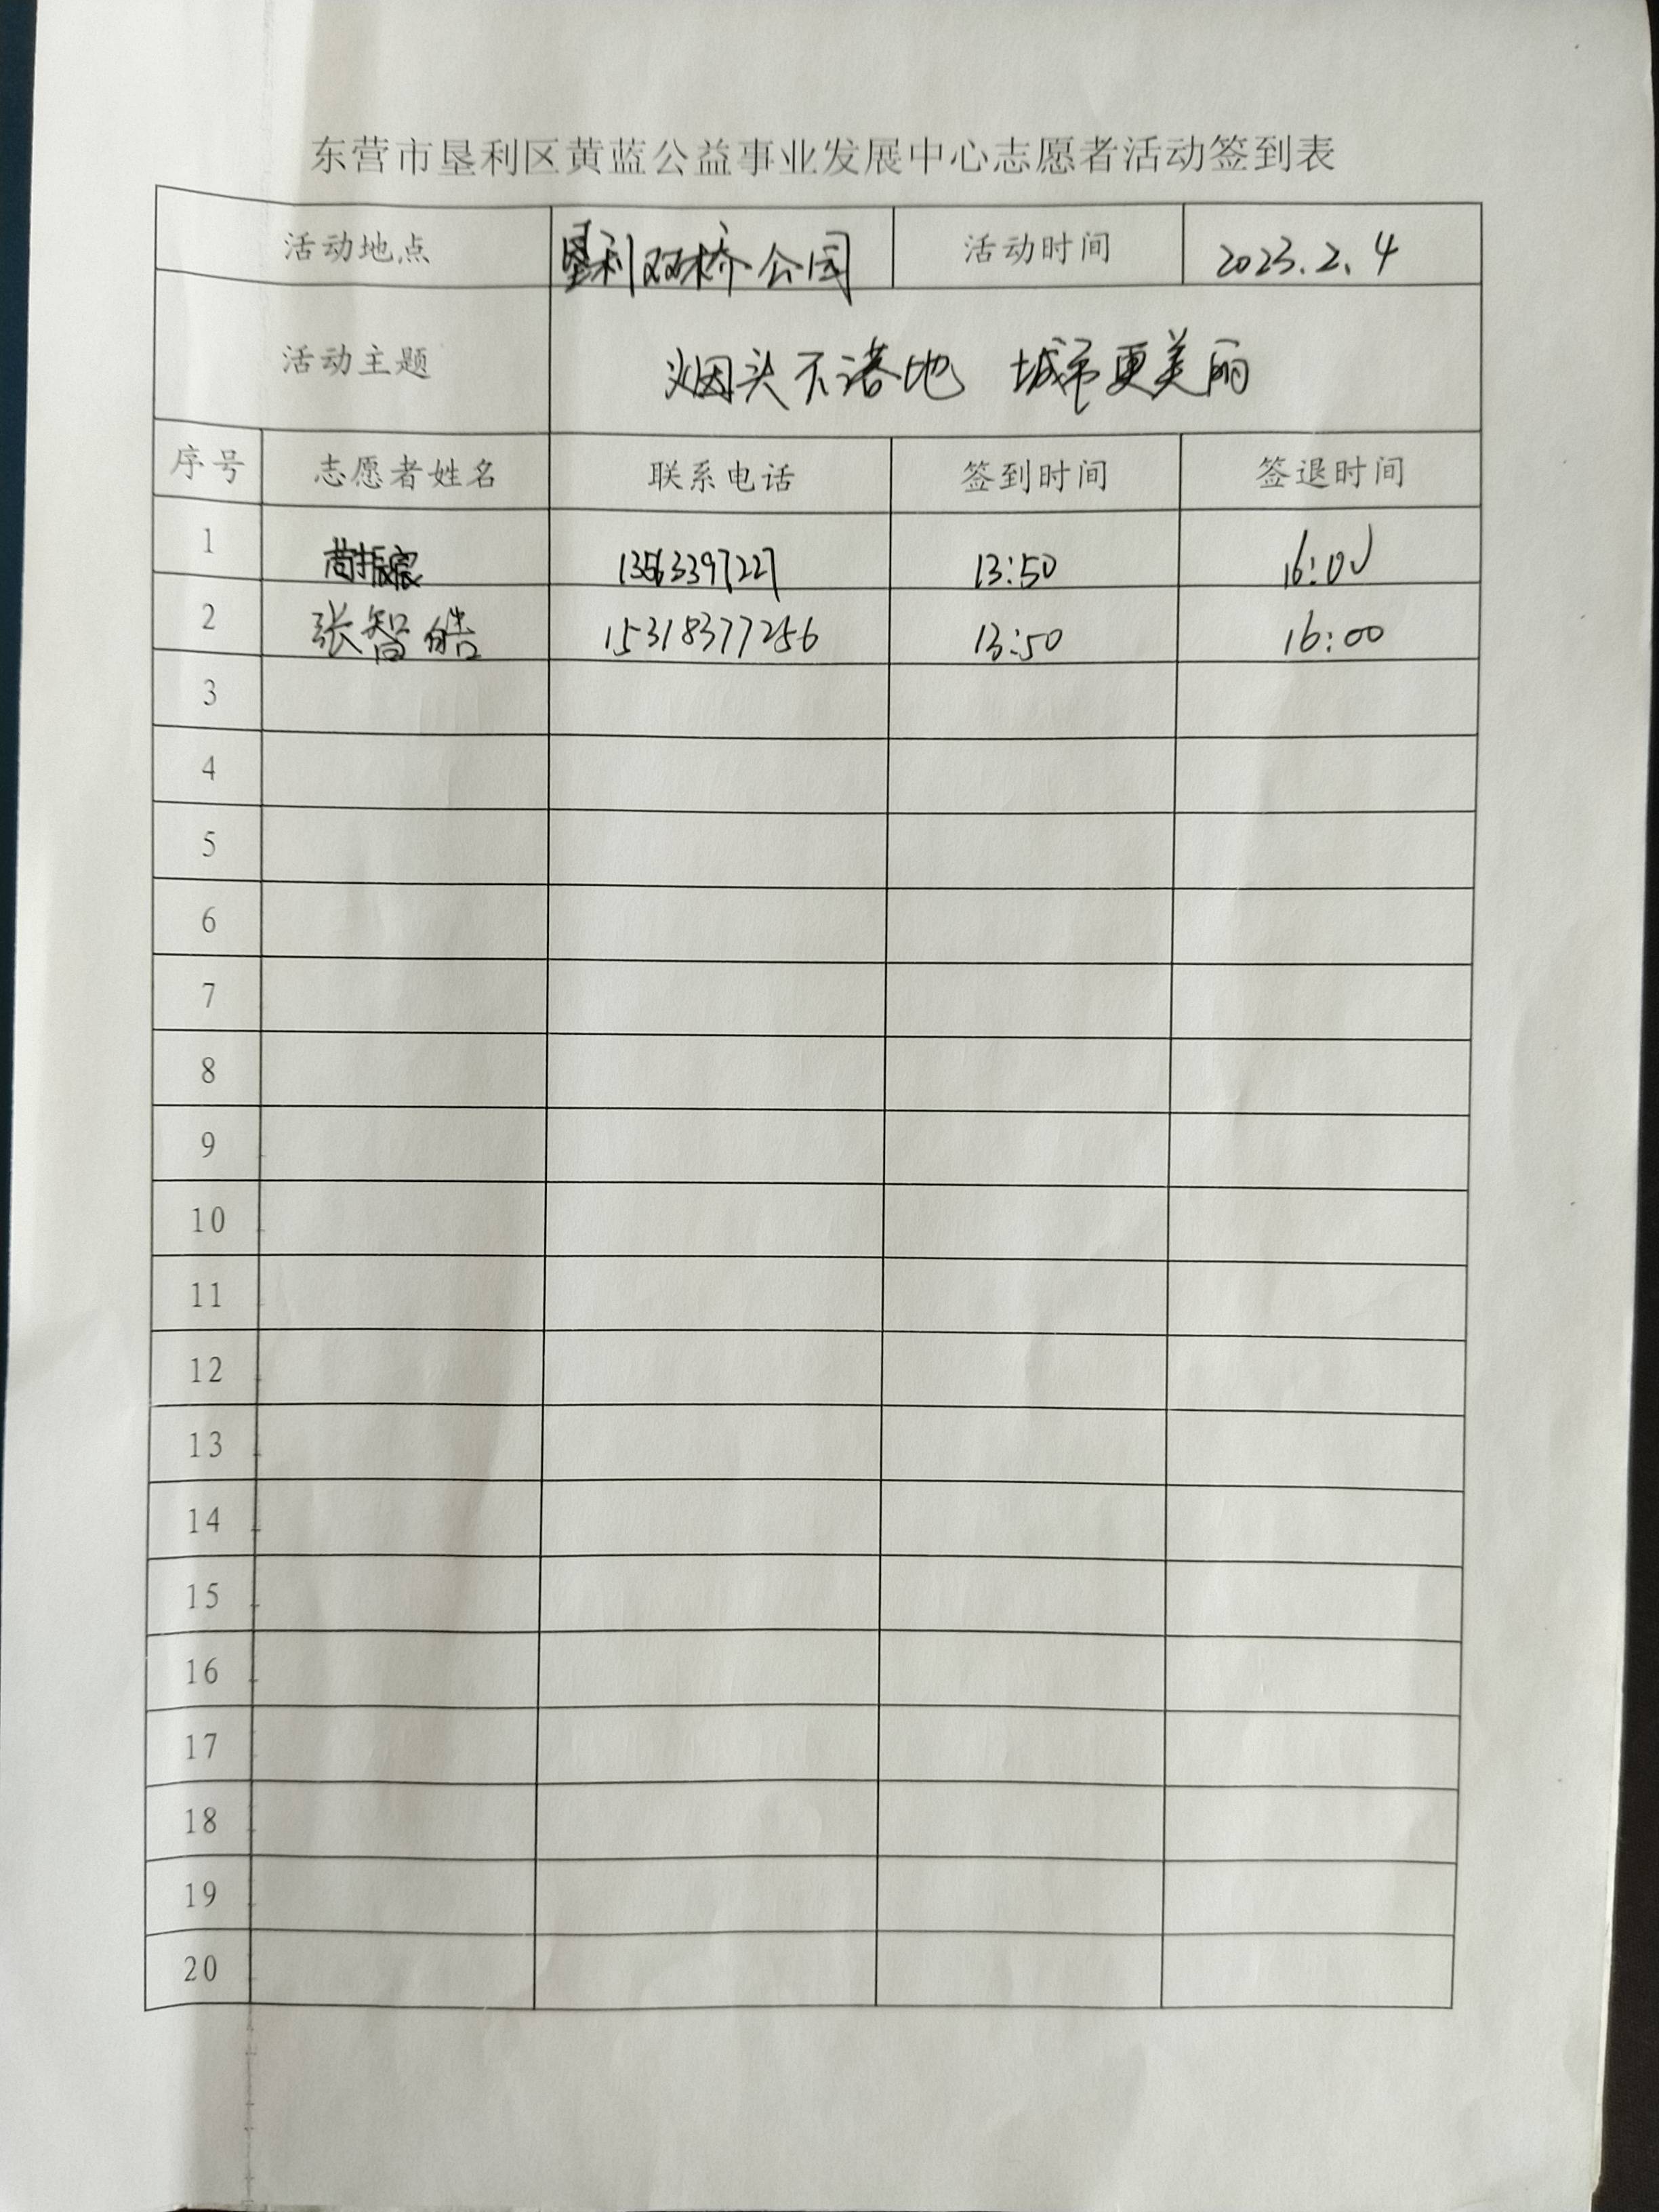 东营市垦利区黄蓝公益事业发展中心志愿者活动签到表
活动地点 垦利双桥公园 活动时间 2023.2.4
活动主题 烟头不落地 城市更美丽
序号 志愿者姓名 联系电话 签到时间 签退时间
1 13563397227 13:50 16:00
2 张智皓 15318377256 13:50 16:00
3
4
5
6
7
8
9
10
11
12
13
14
15
16
17
18
19
20